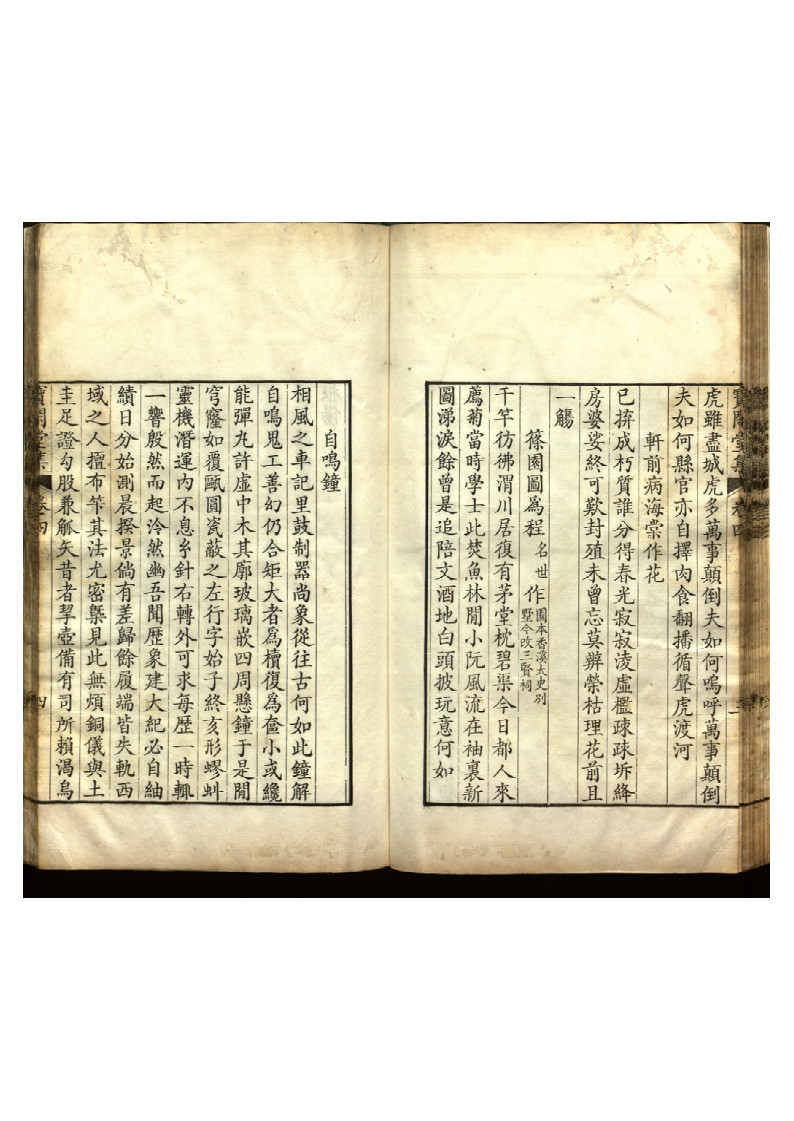 虎雖盡城虎多萬事顛倒夫如何嗚呼萬事顛倒
夫如何縣官亦自擇肉食翻播循聲虎渡河
軒前病海棠作花
已拚成朽質誰分得春光寂寂淩虛檻疎疎坼絳
房婆娑終可歎封殖未曾忘莫辨榮枯理花前且
一觴
篠園圖為程名世作園本香溪太史別
墅今改三賢祠
千竿彷彿渭川居復有茅堂枕碧渠今日都人來
薦菊當時學士此焚魚林閒小阮風流在袖裏新
圖涕淚餘曾是追陪文酒地白頭披玩意何如
自鳴鐘
相風之車記里鼓制器尚象從往古何如此鐘解
自鳴鬼工善幻仍合矩大者為櫝復為奩小或纔
能彈丸許虛中木其廓玻璃嵌四周懸鐘于是閒
穹窿如覆甌圓瓷蔽之左行字始子終亥形蟉虯
靈機潛運內不息𠫼針右轉外可求每歴一時輒
一響殷然而起泠然幽吾聞歴象建大紀必自紬
績日分始測晨揆景倘有差歸餘履端皆失軌西
域之人擅布筭其法尤密槩見此無煩銅儀與土
圭足證勾股兼觚矢昔者挈壺備有司所賴渴烏
寶閑堂集
卷四
四